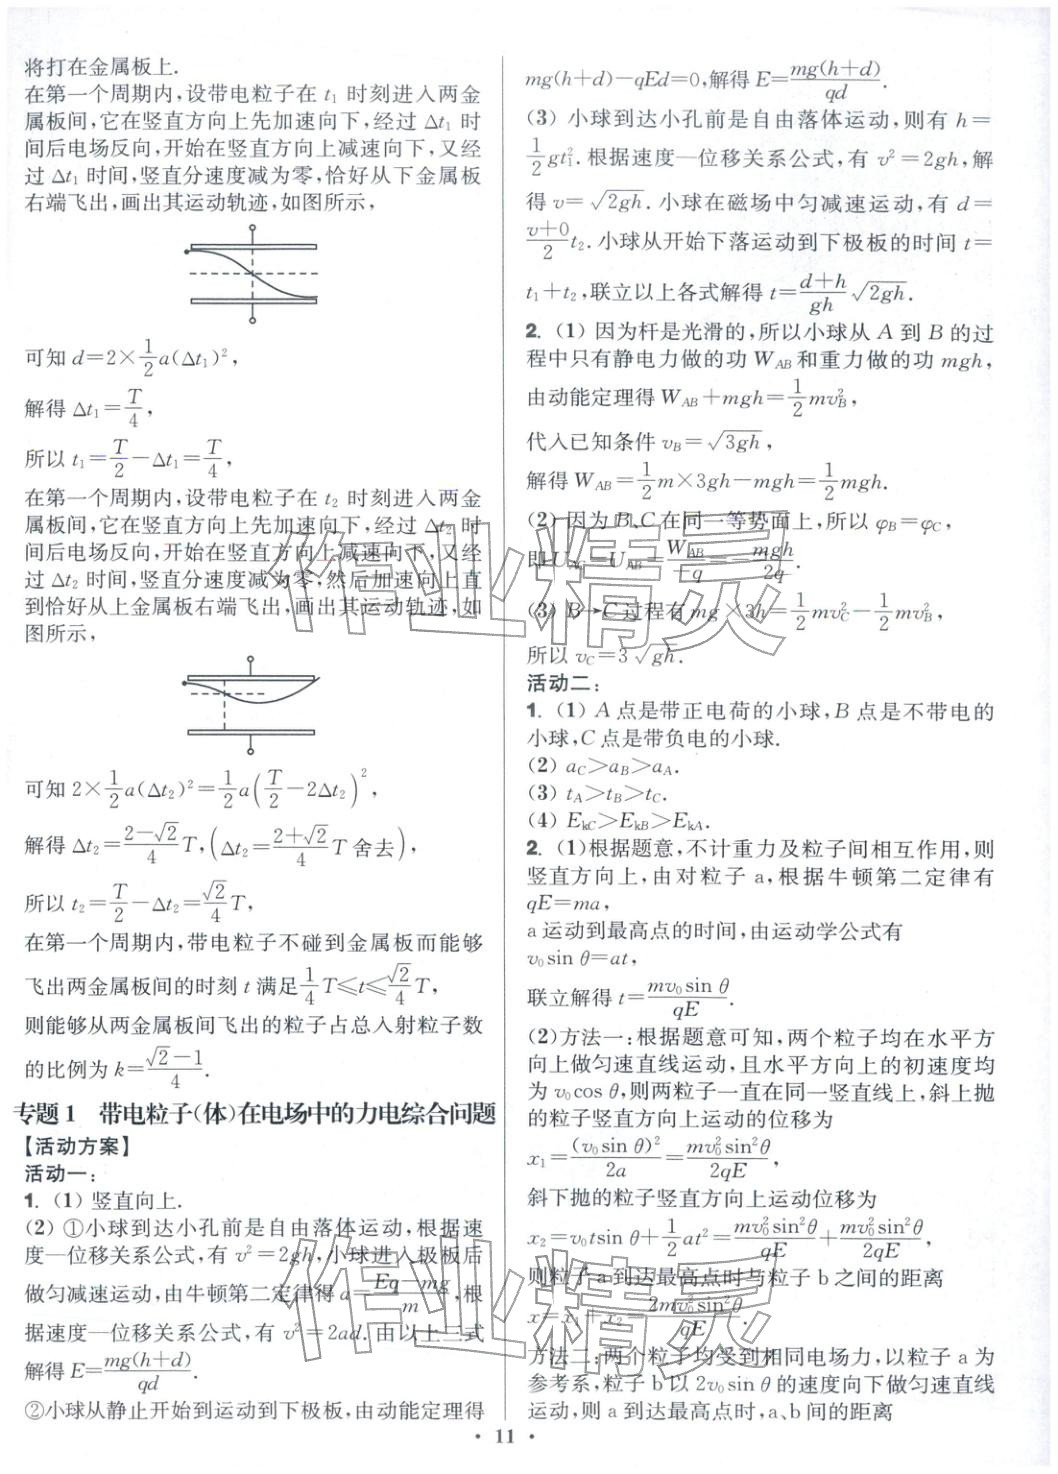 将打在金属板上.
在第一个周期内,设带电粒子在 t₁ 时刻进入两金
属板间,它在竖直方向上先加速向下,经过 Δt₁ 时
间后电场反向,开始在竖直方向上减速向下,又经
过 Δt₁ 时间,竖直分速度减为零,恰好从下金属板
右端飞出,画出其运动轨迹,如图所示,
可知 d=2×1/2a(Δt₁)²,
解得 Δt₁=T/4,
所以 t₁=T/2-Δt₁=T/4,
在第一个周期内,设带电粒子在 t₂ 时刻进入两金
属板间,它在竖直方向上先加速向下,经过 Δt₂ 时
间后电场反向,开始在竖直方向上减速向下,又经
过 Δt₂ 时间,竖直分速度减为零,然后加速向上直
到恰好从上金属板右端飞出,画出其运动轨迹,如
图所示,
可知 2×1/2a(Δt₂)²=1/2a(T/2-2Δt₂)²,
解得 Δt₂=(2-√2)/4T,(Δt₂=(2+√2)/4T 舍去),
所以 t₂=T/2-Δt₂=√2/4T,
在第一个周期内,带电粒子不碰到金属板而能够
飞出两金属板间的时刻 t 满足1/4T≤t≤√2/4T,
则能够从两金属板间飞出的粒子占总入射粒子数
的比例为 k=(√2-1)/4.
专题1 带电粒子(体)在电场中的力电综合问题
【活动方案】
活动一:
1. (1) 竖直向上.
(2) ①小球到达小孔前是自由落体运动,根据速
度—位移关系公式,有 v²=2gh,小球进入极板后
做匀减速运动,由牛顿第二定律得 a=(Eq-mg)/m,根
据速度—位移关系公式,有 v²=2ad.由以上三式
解得 E=mg(h+d)/qd.
②小球从静止开始到运动到下极板,由动能定理得
mg(h+d)-qEd=0,解得 E=mg(h+d)/qd.
(3) 小球到达小孔前是自由落体运动,则有 h=
1/2gt₁².根据速度—位移关系公式,有 v²=2gh,解
得 v=√2gh.小球在磁场中匀减速运动,有 d=
(v+0)/2t₂.小球从开始下落运动到下极板的时间 t=
t₁+t₂,联立以上各式解得 t=(d+h)/gh√2gh.
2. (1) 因为杆是光滑的,所以小球从 A 到 B 的过
程中只有静电力做的功 W_AB 和重力做的功 mgh,
由动能定理得 W_AB+mgh=1/2mv_B²,
代入已知条件 v_B=√3gh,
解得 W_AB=1/2m×3gh-mgh=1/2mgh.
(2) 因为 B、C 在同一等势面上,所以 φ_B=φ_C,
即 U_AC=U_AB=W_AB/-q=-mgh/2q.
(3) B→C 过程有 mg×3h=1/2mv_C²-1/2mv_B²,
所以 v_C=3√gh.
活动二:
1. (1) A 点是带正电荷的小球,B 点是不带电的
小球,C 点是带负电的小球.
(2) a_C>a_B>a_A.
(3) t_A>t_B>t_C.
(4) E_kC>E_kB>E_kA.
2. (1)根据题意,不计重力及粒子间相互作用,则
竖直方向上,由对粒子 a,根据牛顿第二定律有
qE=ma,
a 运动到最高点的时间,由运动学公式有
v₀sin θ=at,
联立解得 t=mv₀sin θ/qE.
(2)方法一:根据题意可知,两个粒子均在水平方
向上做匀速直线运动,且水平方向上的初速度均
为 v₀cos θ,则两粒子一直在同一竖直线上,斜上抛
的粒子竖直方向上运动的位移为
x₁=(v₀sin θ)²/2a=mv₀²sin²θ/2qE,
斜下抛的粒子竖直方向上运动位移为
x₂=v₀tsin θ+1/2at²=mv₀²sin²θ/qE+mv₀²sin²θ/2qE,
则粒子 a 到达最高点时与粒子 b 之间的距离
x=x₁+x₂=2mv₀²sin²θ/qE.
方法二:两个粒子均受到相同电场力,以粒子 a 为
参考系,粒子 b 以 2v₀sin θ 的速度向下做匀速直线
运动,则 a 到达最高点时,a、b 间的距离
• 11 •
作业精灵
作业精灵